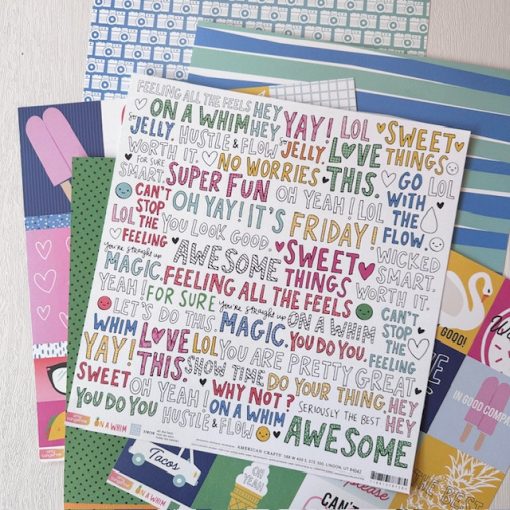 FEELING ALL THE FEELS HEY
ON A WHIM HEY YAY! LOL SWEET
JELLY. HUSTLE & FLOW JELLY. LOVE THINGS
WORTH IT. NO WORRIES THIS. GO LOL
FOR SURE SMART. SUPER FUN OH YEAH! LOL WITH
CAN'T OH YAY! IT'S FRIDAY! THE
STOP FLOW.
LOL THE YOU LOOK GOOD. WICKED
FEELING AWESOME SWEET SMART.
you're straight up MAGIC. THINGS WORTH IT.
FEELING ALL THE FEELS
YEAH! FOR SURE you're straight up ON A WHIM CAN'T
LET'S DO THIS. MAGIC. YOU DO YOU. STOP
WHIM LOVE LOL THE
YAY! THIS. YOU ARE PRETTY GREAT. FEELING
SNOW TIME DO YOUR THING. HEY
SWEET OH YEAH! WHY NOT? HEY
YOU DO YOU ON A WHIM SERIOUSLY THE BEST
HUSTLE & FLOW AWESOME
ON A WHIM
AMERICAN CRAFTS 588 W 400 S, STE 300, LINDON, UT 84042
GOOD!
IN GOOD COMP
Tacos
OH YEAH
please
CAN'T
THE BEST
ON A WHIM